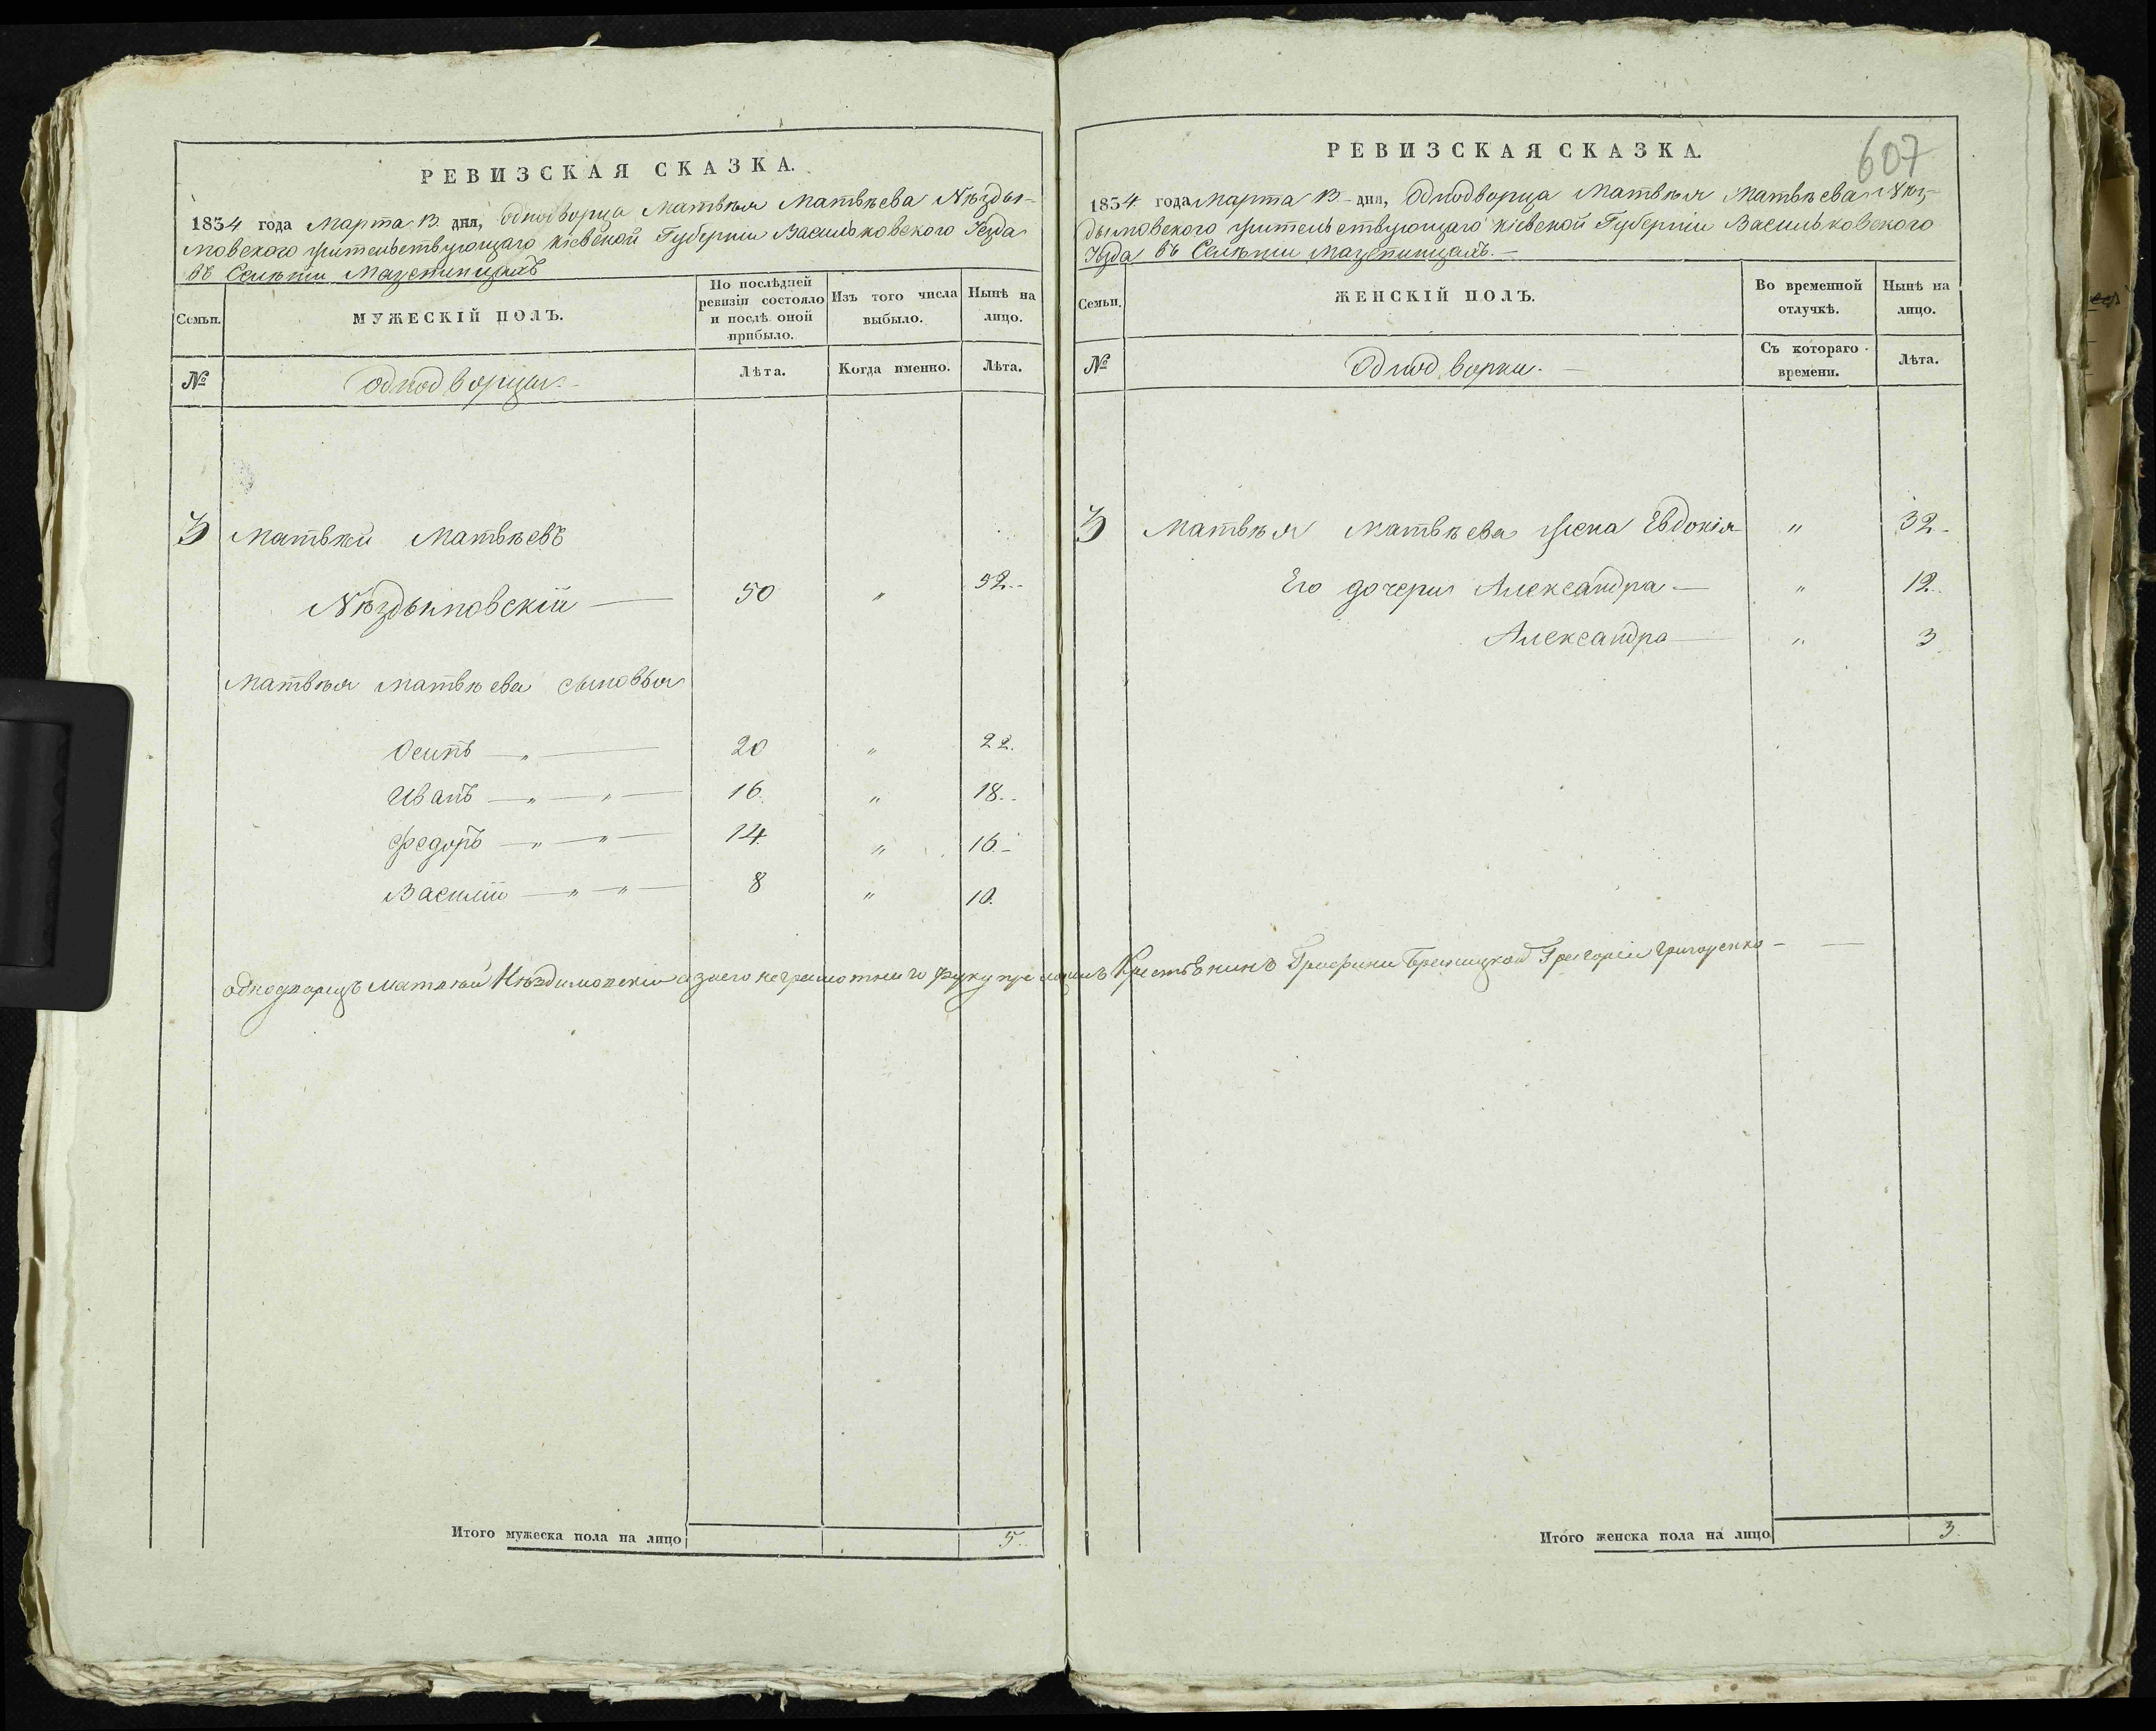 РЕВИЗСКАЯ СКАЗКА.
1834 года Марта 13 дня, однодворца Матвѣя Матвѣева Нѣзды-
мовского жительствующаго Кіевской Губерніи Васильковского Уѣзда
въ Селѣніи Мазепинцахъ
Семьи.
МУЖЕСКІЙ ПОЛЪ.
По послѣдней ревизіи состояло и послѣ оной прибыло.
Изъ того числа выбыло.
Нынѣ на лицо.
№
однодворцы.
Лѣта.
Когда именно.
Лѣта.
3 Матвѣй Матвѣевъ
Нѣздымовскій — 50 „ 52.
Матвѣя Матвѣева сыновья
Осипъ — „ — 20 „ 22.
Иванъ — „ — „ — 16. „ 18.
Федоръ — „ — „ — 14. „ 16.
Василій — „ — „ — 8 „ 10.
однодворецъ Матвѣй Нѣздимовскій а за его неграмотнаго руку приложилъ Крестьянинъ Графини Браницкой Григорій Григоренко —
Итого мужеска пола на лицо 5.
607
РЕВИЗСКАЯ СКАЗКА.
1834 года Марта 13 дня, Однодворца Матвѣя Матвѣева Нѣз-
дымовского жительствующаго Кіевской Губерніи Васильковского
Уѣзда въ Селѣніи Мазепинцахъ. —
Семьи.
ЖЕНСКІЙ ПОЛЪ.
Во временной отлучкѣ.
Нынѣ на лицо.
№
Однодворки. —
Съ котораго времени.
Лѣта.
3 Матвѣя Матвѣева жена Евдокія „ 32.
Его дочери Александра — „ 12.
Александра — „ 3
Итого женска пола на лицо 3.